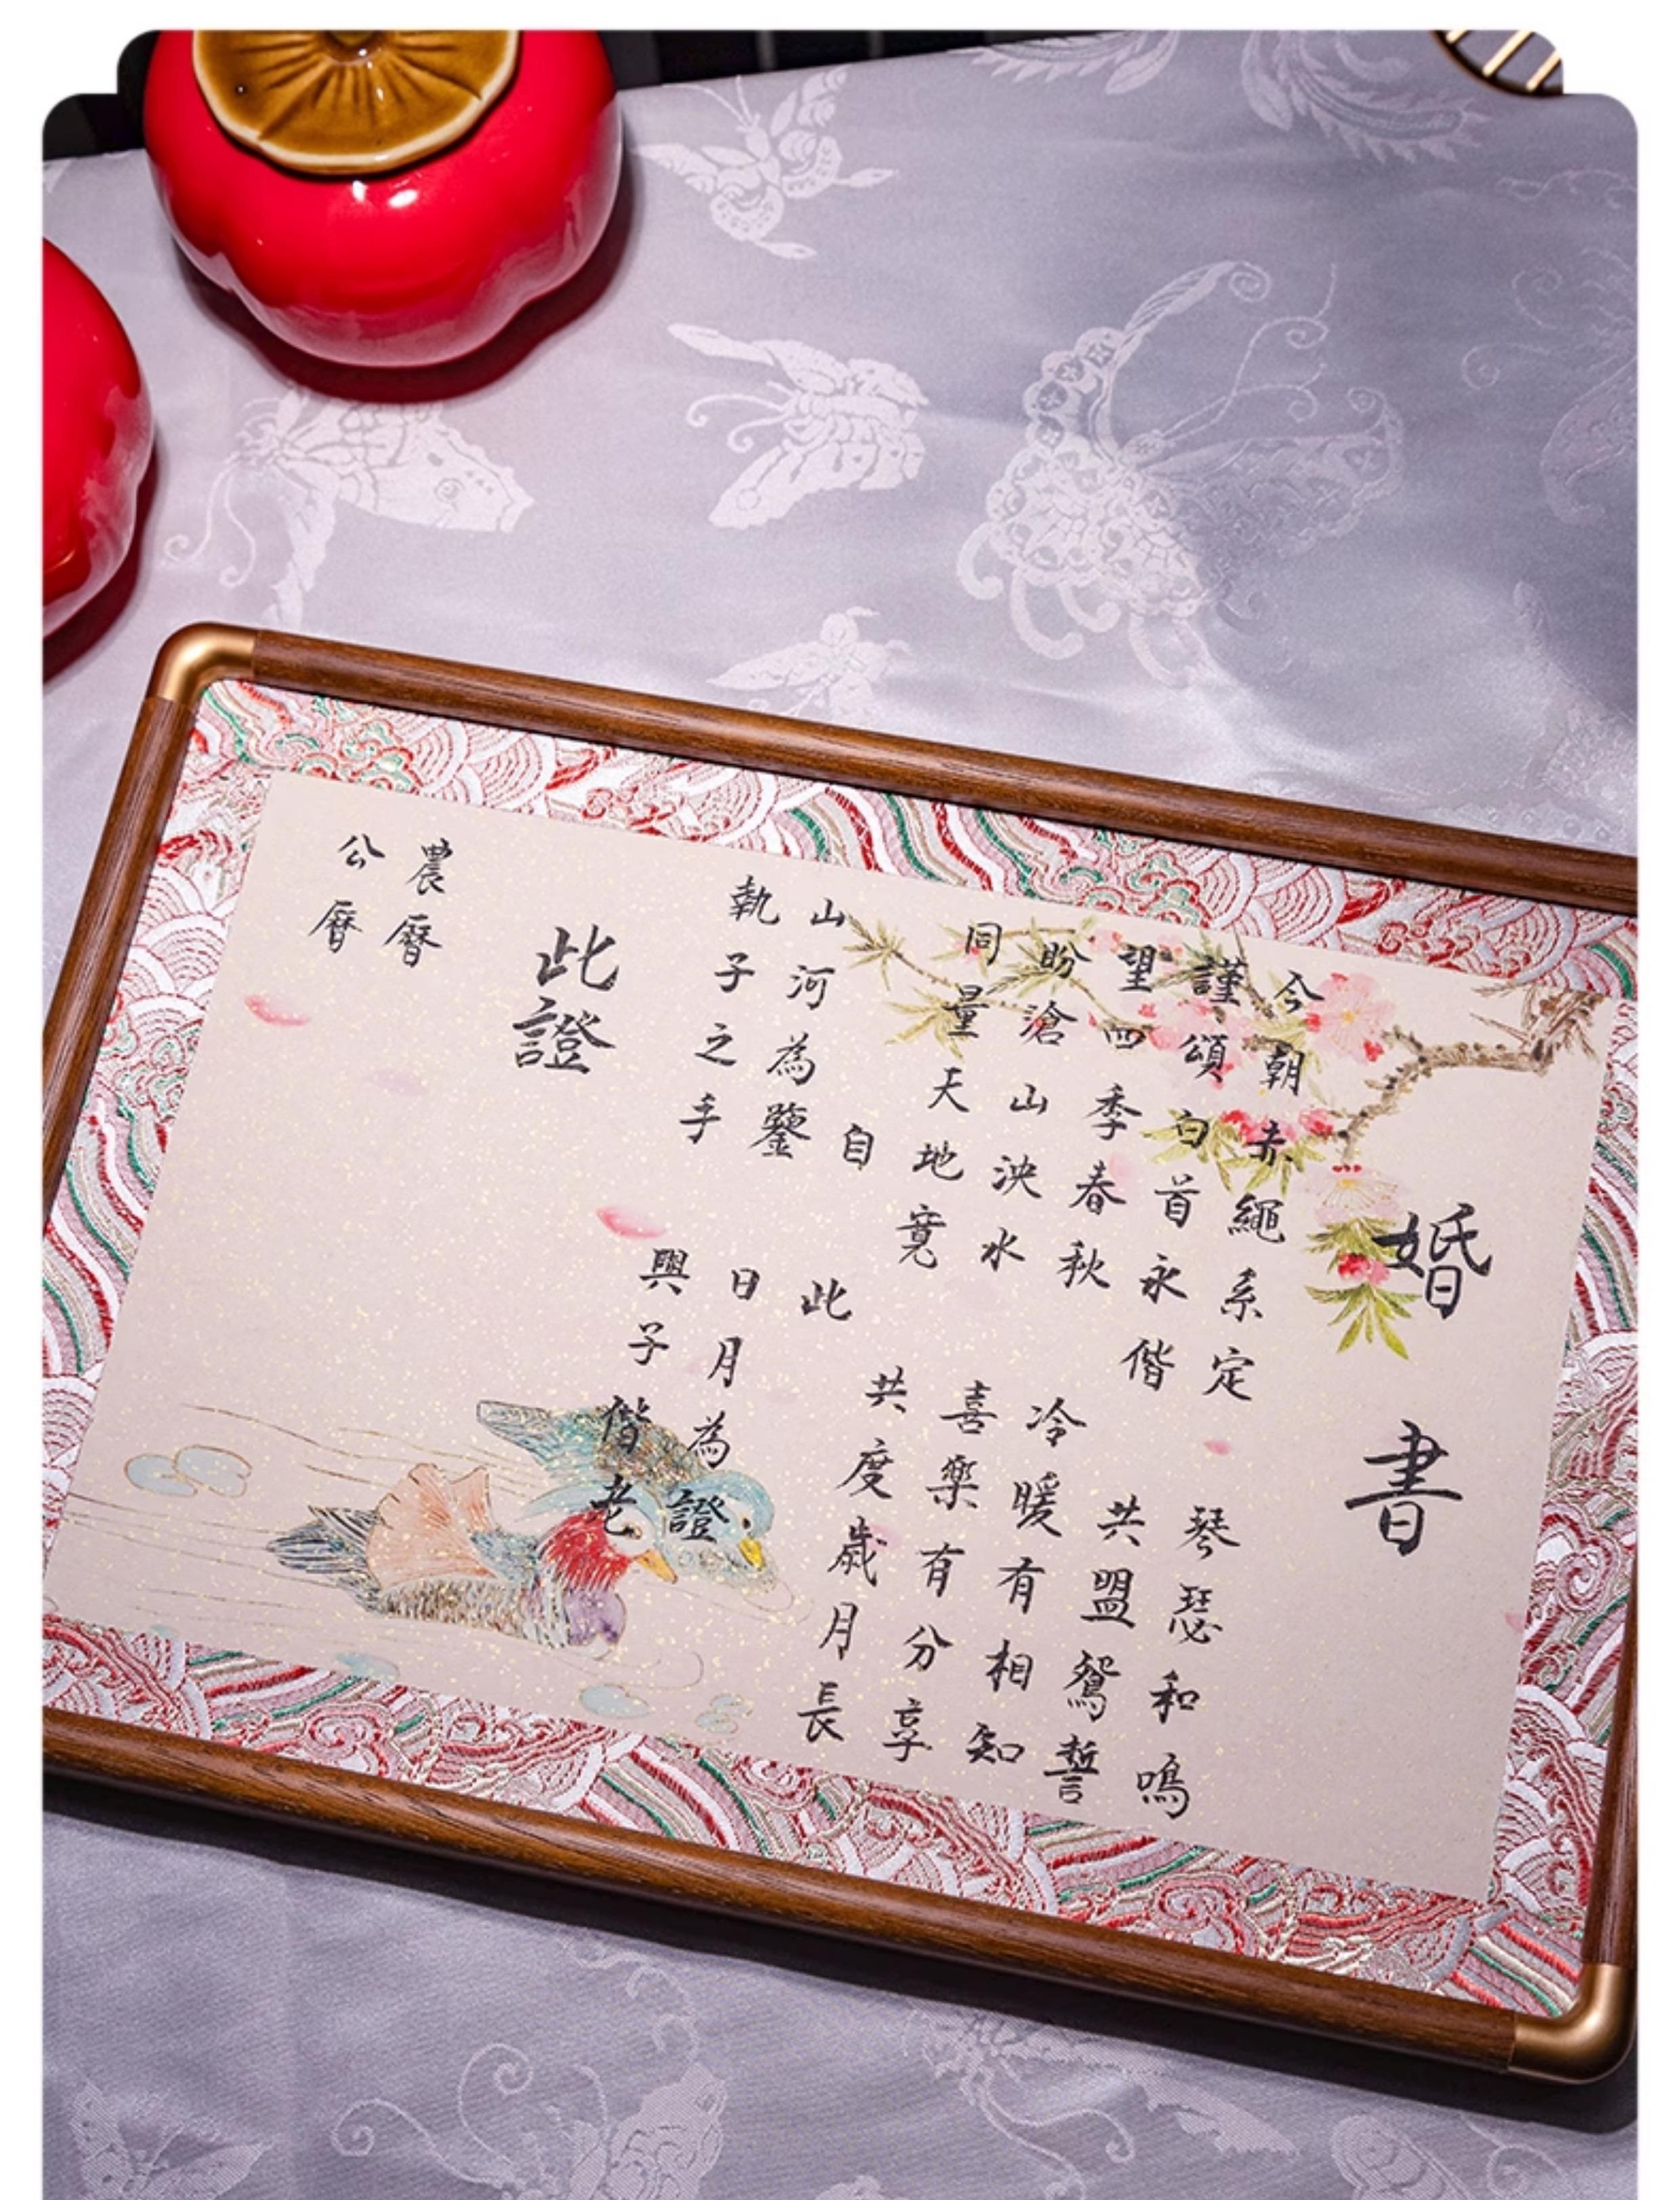 婚書
今朝赤繩系定 琴瑟和鳴
謹頌白首永偕 共盟鴛誓
望四季春秋 冷暖有相知
盼滄山泱水 喜樂有分享
同量天地寬 共度歲月長
自此
山河為鑒 日月為證
執子之手 興子偕老
此證
農曆
公曆